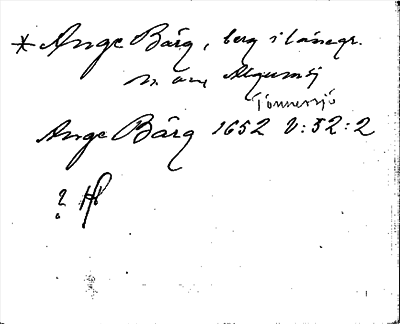 * Ange Bärg, berg i lánegr.
n. om Algumsj
Tönnersjö
Ange Bärg 1652 V:52:2
? Hl